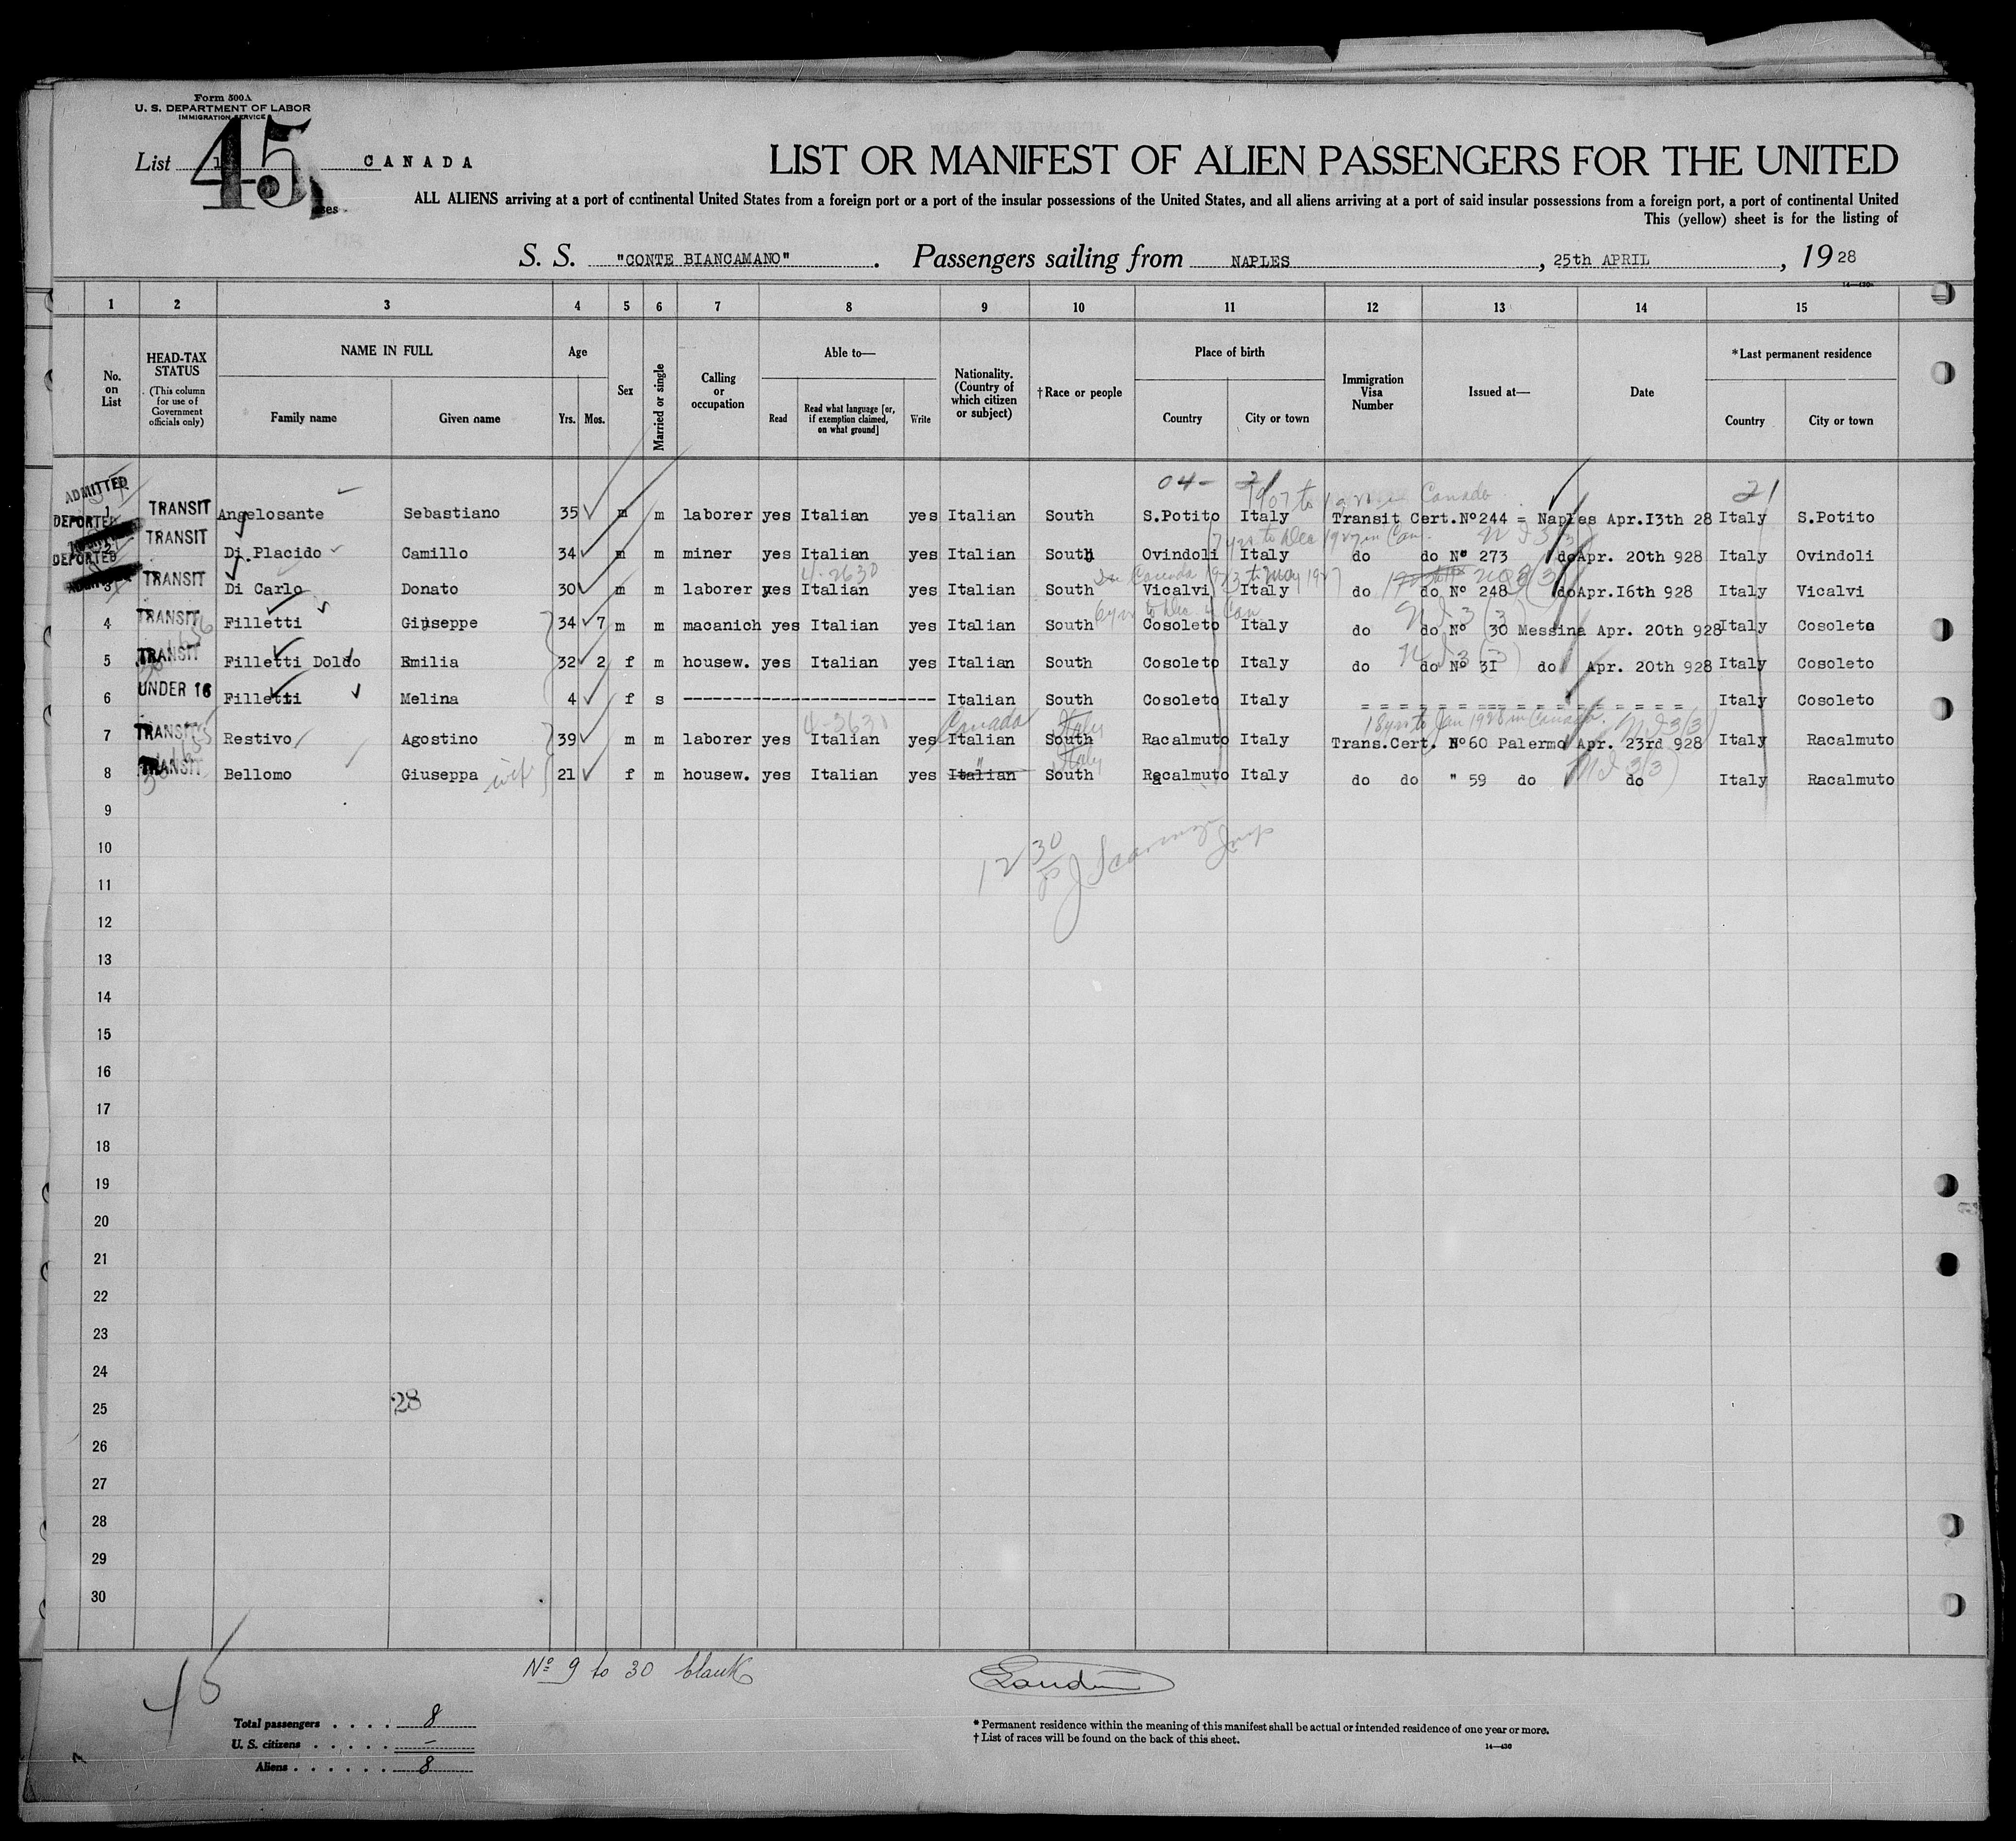 Form 500A
U. S. DEPARTMENT OF LABOR
IMMIGRATION SERVICE
List 1 45 CANADA
LIST OR MANIFEST OF ALIEN PASSENGERS FOR THE UNITED
ALL ALIENS arriving at a port of continental United States from a foreign port or a port of the insular possessions of the United States, and all aliens arriving at a port of said insular possessions from a foreign port, a port of continental United
This (yellow) sheet is for the listing of
S. S. "CONTE BIANCAMANO". Passengers sailing from NAPLES, 25th APRIL, 1928
14-430
1 2 3 4 5 6 7 8 9 10 11 12 13 14 15
No. on List
HEAD-TAX STATUS
(This column for use of Government officials only)
NAME IN FULL
Family name Given name
Age
Yrs. Mos.
Sex
Married or single
Calling or occupation
Able to—
Read
Read what language [or, if exemption claimed, on what ground]
Write
Nationality. (Country of which citizen or subject)
†Race or people
Place of birth
Country City or town
Immigration Visa Number
Issued at—
Date
*Last permanent residence
Country City or town
04- 21 21
ADMITTED
1907 to Canada
1 TRANSIT Angelosante Sebastiano 35 m m laborer yes Italian yes Italian South S.Potito Italy Transit Cert.Nº244 = Naples Apr.I3th 28 Italy S.Potito
DEPORTED
7 yrs to Dec 1927 in Can.
2 TRANSIT Di.Placido Camillo 34 m m miner yes Italian yes Italian South Ovindoli Italy do do Nº 273 do Apr. 20th 928 Italy Ovindoli
DEPORTED
4-2630 In Canada 1913 to May 1927
3 TRANSIT Di Carlo Donato 30 m m laborer yes Italian yes Italian South Vicalvi Italy do do Nº 248 do Apr.I6th 928 Italy Vicalvi
6 yrs to Dec. in Can
4 TRANSIT Filletti Giuseppe 34 7 m m macanich yes Italian yes Italian South Cosoleto Italy do do Nº 30 Messina Apr. 20th 928 Italy Cosoleto
5 TRANSIT Filletti Doldo Emilia 32 2 f m housew. yes Italian yes Italian South Cosoleto Italy do do Nº 3I do Apr. 20th 928 Italy Cosoleto
6 UNDER 16 Filletti Melina 4 f s ---------------------- Italian South Cosoleto Italy = = = = = = = = = = = = = = = = = = Italy Cosoleto
4-3630 Canada Italy 18 yrs to Jan 1928 in Canada.
7 TRANSIT Restivo Agostino 39 m m laborer yes Italian yes Italian South Racalmuto Italy Trans.Cert. Nº60 Palermo Apr. 23rd 928 Italy Racalmuto
Italy
8 TRANSIT Bellomo Giuseppa wife 21 f m housew. yes Italian yes Italian South Racalmuto Italy do do " 59 do do Italy Racalmuto
9
10
12 30
11
12
13
14
15
16
17
18
19
20
21
22
23
24
25
28
26
27
28
29
30
Nº 9 to 30 blank
45
Total passengers . . . . 8
U. S. citizens . . . . . –
Aliens . . . . . . 8
* Permanent residence within the meaning of this manifest shall be actual or intended residence of one year or more.
† List of races will be found on the back of this sheet.
14-430